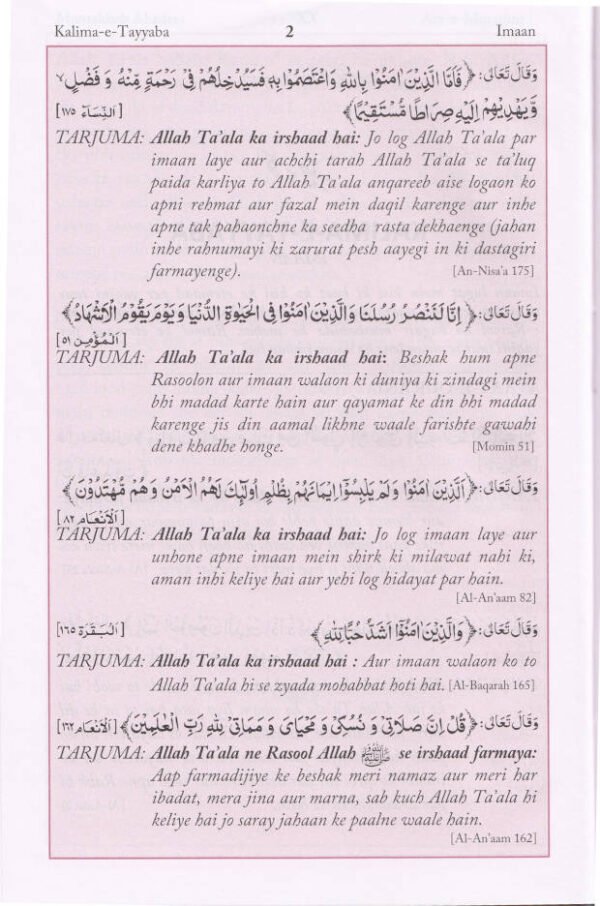 Kalima-e-Tayyaba 2 Imaan
وَقَالَ تَعَالٰى: ﴿فَاَمَّا الَّذِيْنَ اٰمَنُوْا بِاللهِ وَاعْتَصَمُوْا بِهٖ فَسَيُدْخِلُهُمْ فِىْ رَحْمَةٍ مِّنْهُ وَ فَضْلٍ ۙ
وَّيَهْدِيْهِمْ اِلَيْهِ صِرَاطًا مُّسْتَقِيْمًا﴾ [النِّسَآء ١٧٥]
TARJUMA: Allah Ta'ala ka irshaad hai: Jo log Allah Ta'ala par
imaan laye aur achchi tarah Allah Ta'ala se ta'luq
paida karliya to Allah Ta'ala anqareeb aise logaon ko
apni rehmat aur fazal mein daqil karenge aur inhe
apne tak pahaonchne ka seedha rasta dekhaenge (jahan
inhe rahnumayi ki zarurat pesh aayegi in ki dastagiri
farmayenge). [An-Nisa'a 175]
وَقَالَ تَعَالٰى: ﴿اِنَّا لَنَنْصُرُ رُسُلَنَا وَالَّذِيْنَ اٰمَنُوْا فِى الْحَيٰوةِ الدُّنْيَا وَ يَوْمَ يَقُوْمُ الْاَشْهَادُ﴾
[الْمُؤْمِن ٥١]
TARJUMA: Allah Ta'ala ka irshaad hai: Beshak hum apne
Rasoolon aur imaan walaon ki duniya ki zindagi mein
bhi madad karte hain aur qayamat ke din bhi madad
karenge jis din aamal likhne waale farishte gawahi
dene khadhe honge. [Momin 51]
وَقَالَ تَعَالٰى: ﴿اَلَّذِيْنَ اٰمَنُوْا وَ لَمْ يَلْبِسُوْٓا اِيْمَانَهُمْ بِظُلْمٍ اُولٰٓئِكَ لَهُمُ الْاَمْنُ وَ هُمْ مُّهْتَدُوْنَ﴾
[الْاَنْعَام ٨٢]
TARJUMA: Allah Ta'ala ka irshaad hai: Jo log imaan laye aur
unhone apne imaan mein shirk ki milawat nahi ki,
aman inhi keliye hai aur yehi log hidayat par hain.
[Al-An'aam 82]
وَقَالَ تَعَالٰى: ﴿وَالَّذِيْنَ اٰمَنُوْٓا اَشَدُّ حُبًّا لِّلّٰهِ﴾ [الْبَقَرَة ١٦٥]
TARJUMA: Allah Ta'ala ka irshaad hai : Aur imaan walaon ko to
Allah Ta'ala hi se zyada mohabbat hoti hai. [Al-Baqarah 165]
وَقَالَ تَعَالٰى: ﴿قُلْ اِنَّ صَلَاتِىْ وَ نُسُكِىْ وَ مَحْيَاىَ وَ مَمَاتِىْ لِلّٰهِ رَبِّ الْعٰلَمِيْنَ﴾ [الْاَنْعَام ١٦٢]
TARJUMA: Allah Ta'ala ne Rasool Allah ﷺ se irshaad farmaya:
Aap farmadijiye ke beshak meri namaz aur meri har
ibadat, mera jina aur marna, sab kuch Allah Ta'ala hi
keliye hai jo saray jahaan ke paalne waale hain.
[Al-An'aam 162]